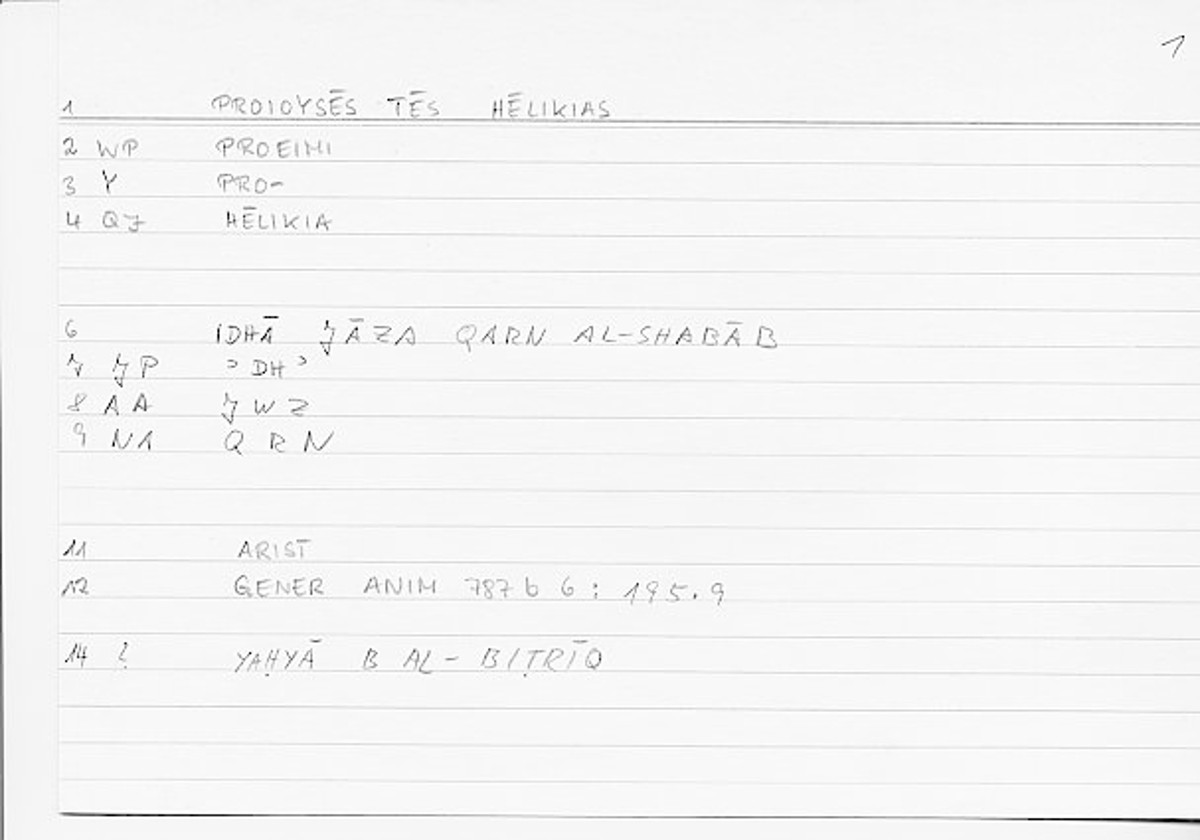 1
1 PROIOYSĒS TĒS HĒLIKIAS
2 WP PROEIMI
3 Y PRO-
4 QJ HĒLIKIA
6 IDHĀ JĀZA QARN AL-SHABĀB
7 JP ʾDHʾ
8 AA JWZ
9 NA QRN
11 ARIST
12 GENER ANIM 787 b 6 : 195.9
14 ? YAḤYĀ B AL-BIṬRĪQ